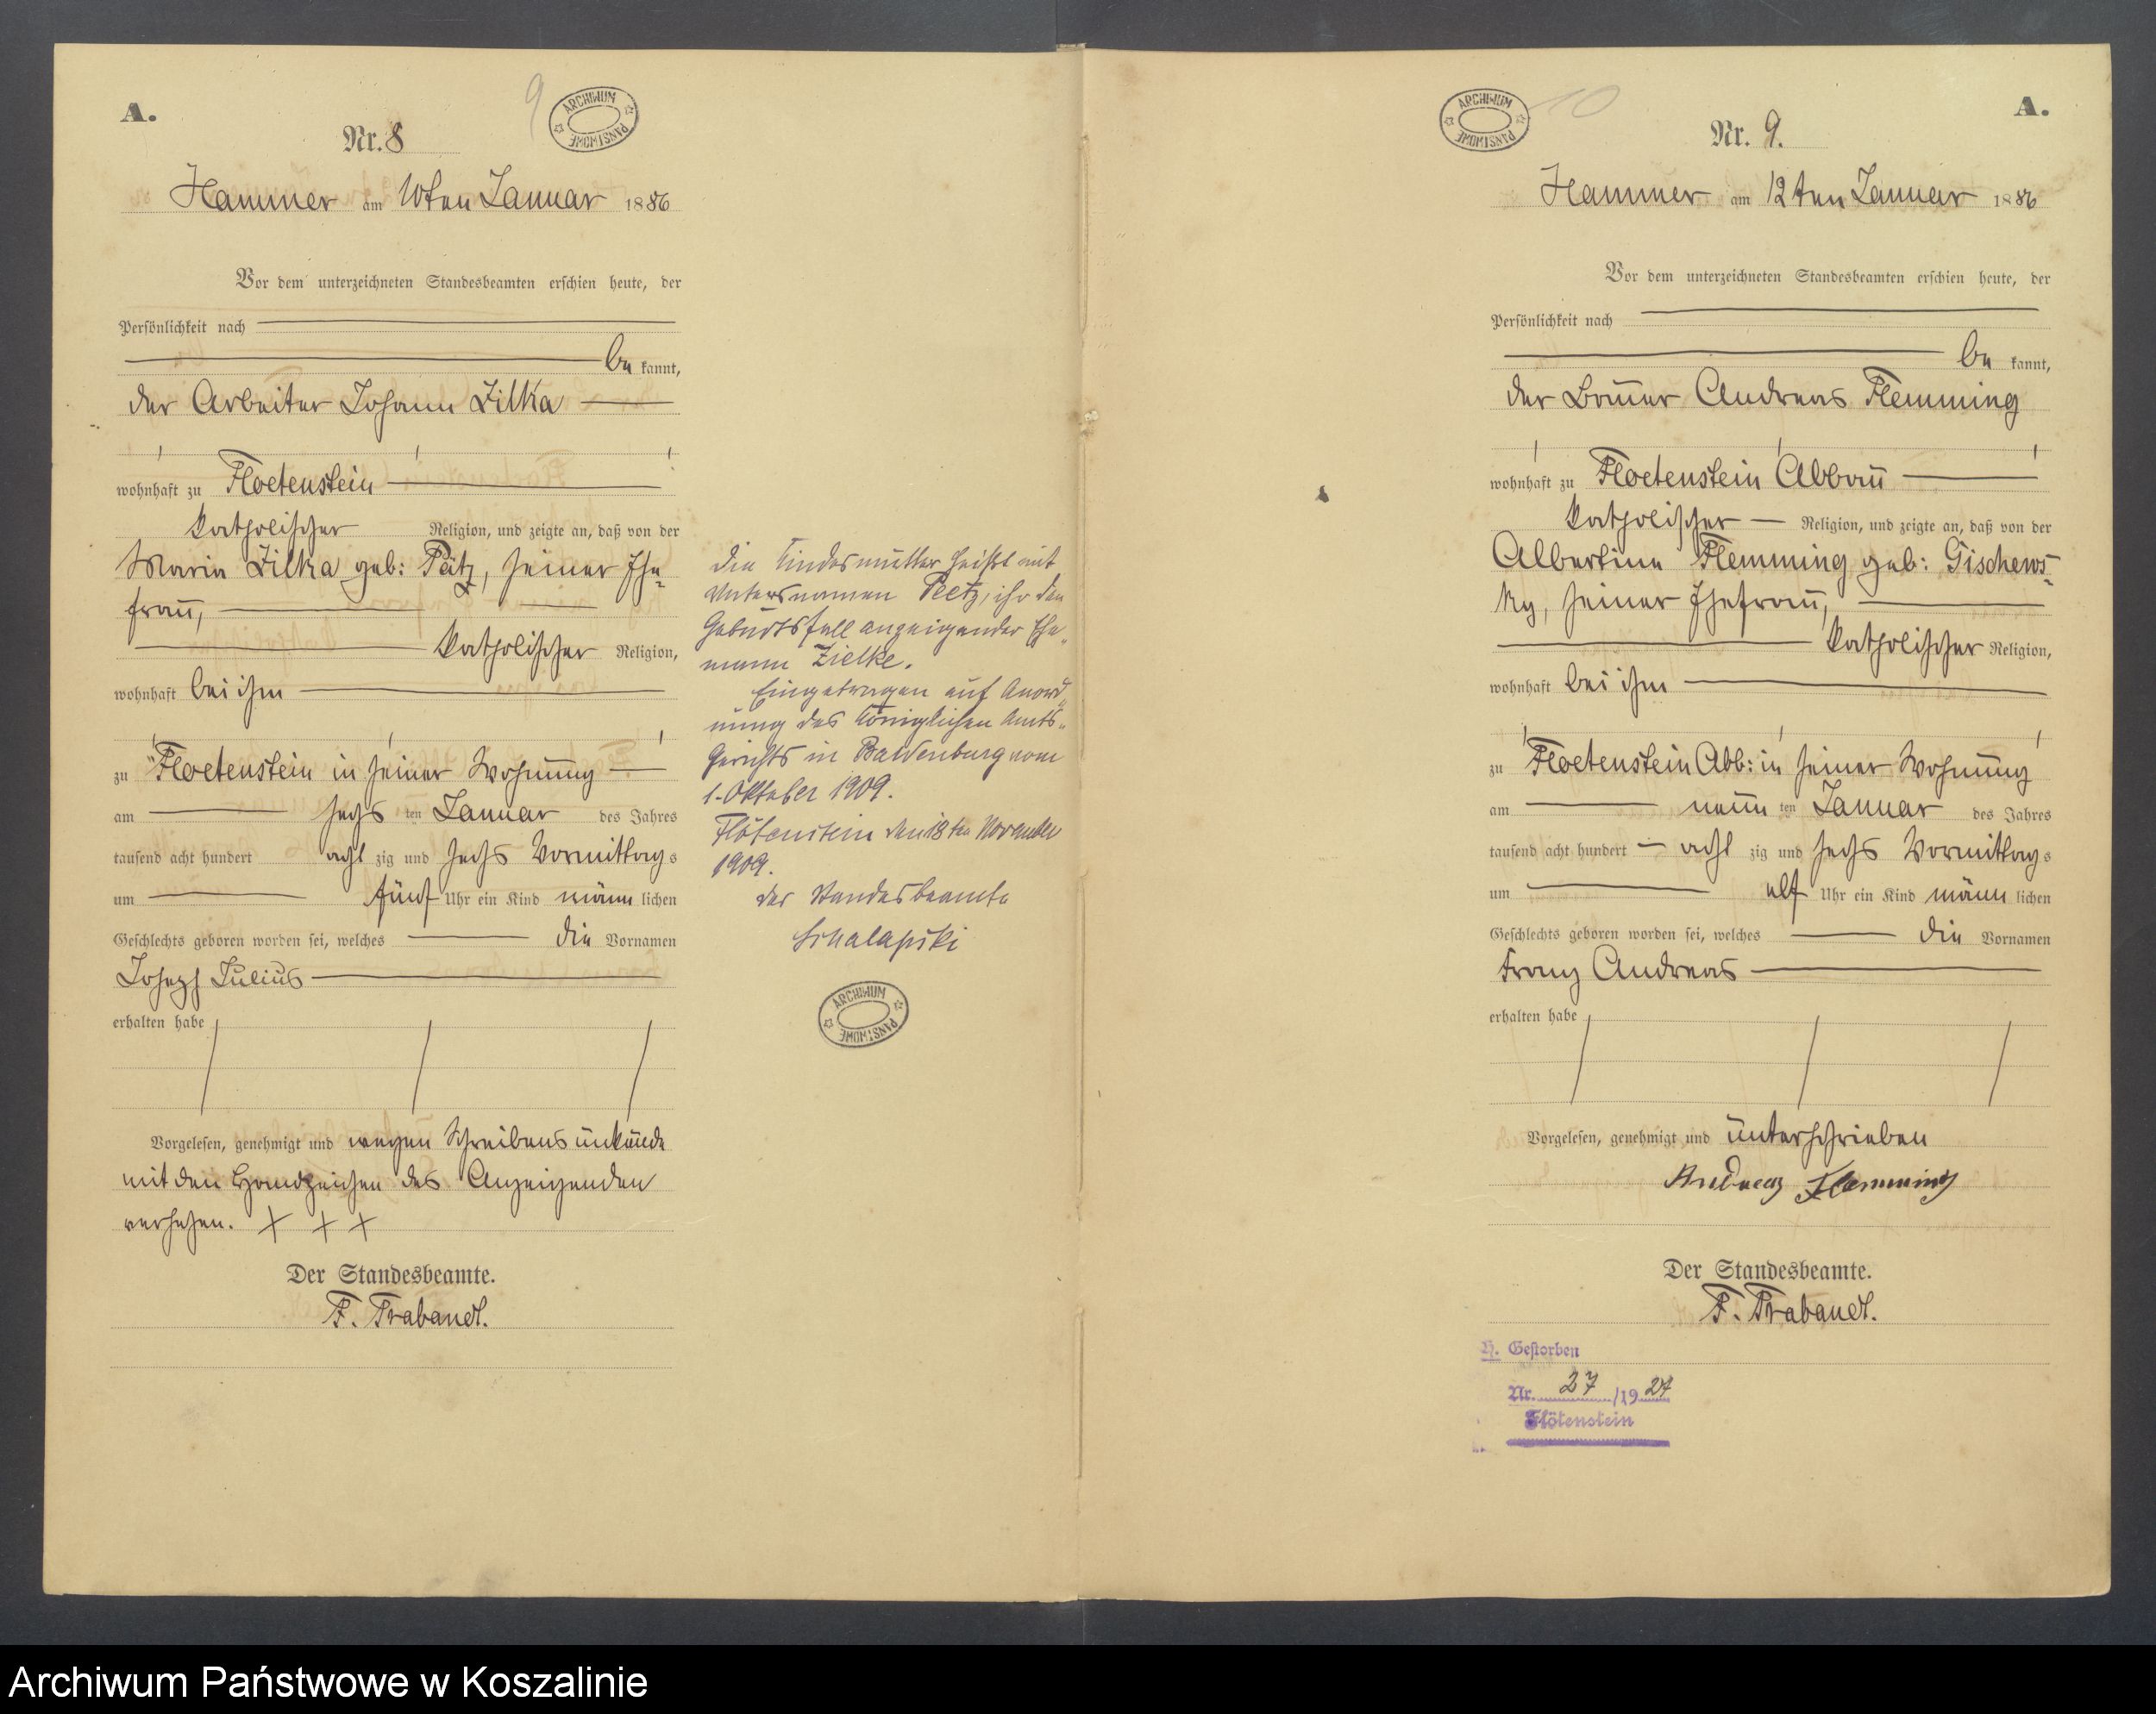 A.
9
ARCHIWUM PAŃSTWOWE
Nr. 8
Hammer am 10ten Januar 1886
Vor dem unterzeichneten Standesbeamten erschien heute, der
Persönlichkeit nach
be kannt,
der Arbeiter Johann Zilka
wohnhaft zu Floetenstein
katholischer Religion, und zeigte an, daß von der
Maria Zilka geb: Pätz, seiner Ehe-
frau,
katholischer Religion,
wohnhaft bei ihm
zu Floetenstein in seiner Wohnung
am sechs ten Januar des Jahres
tausend acht hundert acht zig und sechs Vormittags
um fünf Uhr ein Kind männ lichen
Geschlechts geboren worden sei, welches die Vornamen
Joseph Julius
erhalten habe
Vorgelesen, genehmigt und wegen Schreibensunkunde
mit den Handzeichen des Anzeigenden
versehen. + + +
Der Standesbeamte.
F. Trabandt.
Die Kindesmutter heißt mit
Vatersnamen Peetz, ihr den
Geburtsfall anzeigender Ehe-
mann Zielke.
Eingetragen auf Anord-
nung des Königlichen Amts-
Gerichts in Baldenburg vom
1. Oktober 1909.
Flötenstein den 18ten November
1909.
Der Standesbeamte
Schalapski
ARCHIWUM PAŃSTWOWE
ARCHIWUM PAŃSTWOWE
10
A.
Nr. 9.
Hammer am 12ten Januar 1886
Vor dem unterzeichneten Standesbeamten erschien heute, der
Persönlichkeit nach
be kannt,
der Bauer Andreas Flemming
wohnhaft zu Floetenstein Abbau
katholischer Religion, und zeigte an, daß von der
Albertine Flemming geb: Gischews-
ky, seiner Ehefrau,
katholischer Religion,
wohnhaft bei ihm
zu Floetenstein Abb: in seiner Wohnung
am neun ten Januar des Jahres
tausend acht hundert acht zig und sechs Vormittags
um elf Uhr ein Kind männ lichen
Geschlechts geboren worden sei, welches die Vornamen
Franz Andreas
erhalten habe
Vorgelesen, genehmigt und unterschrieben
Andreas Flemming
Der Standesbeamte.
F. Trabandt.
H. Gestorben
Nr. 27 /19 27
Flötenstein
Archiwum Państwowe w Koszalinie